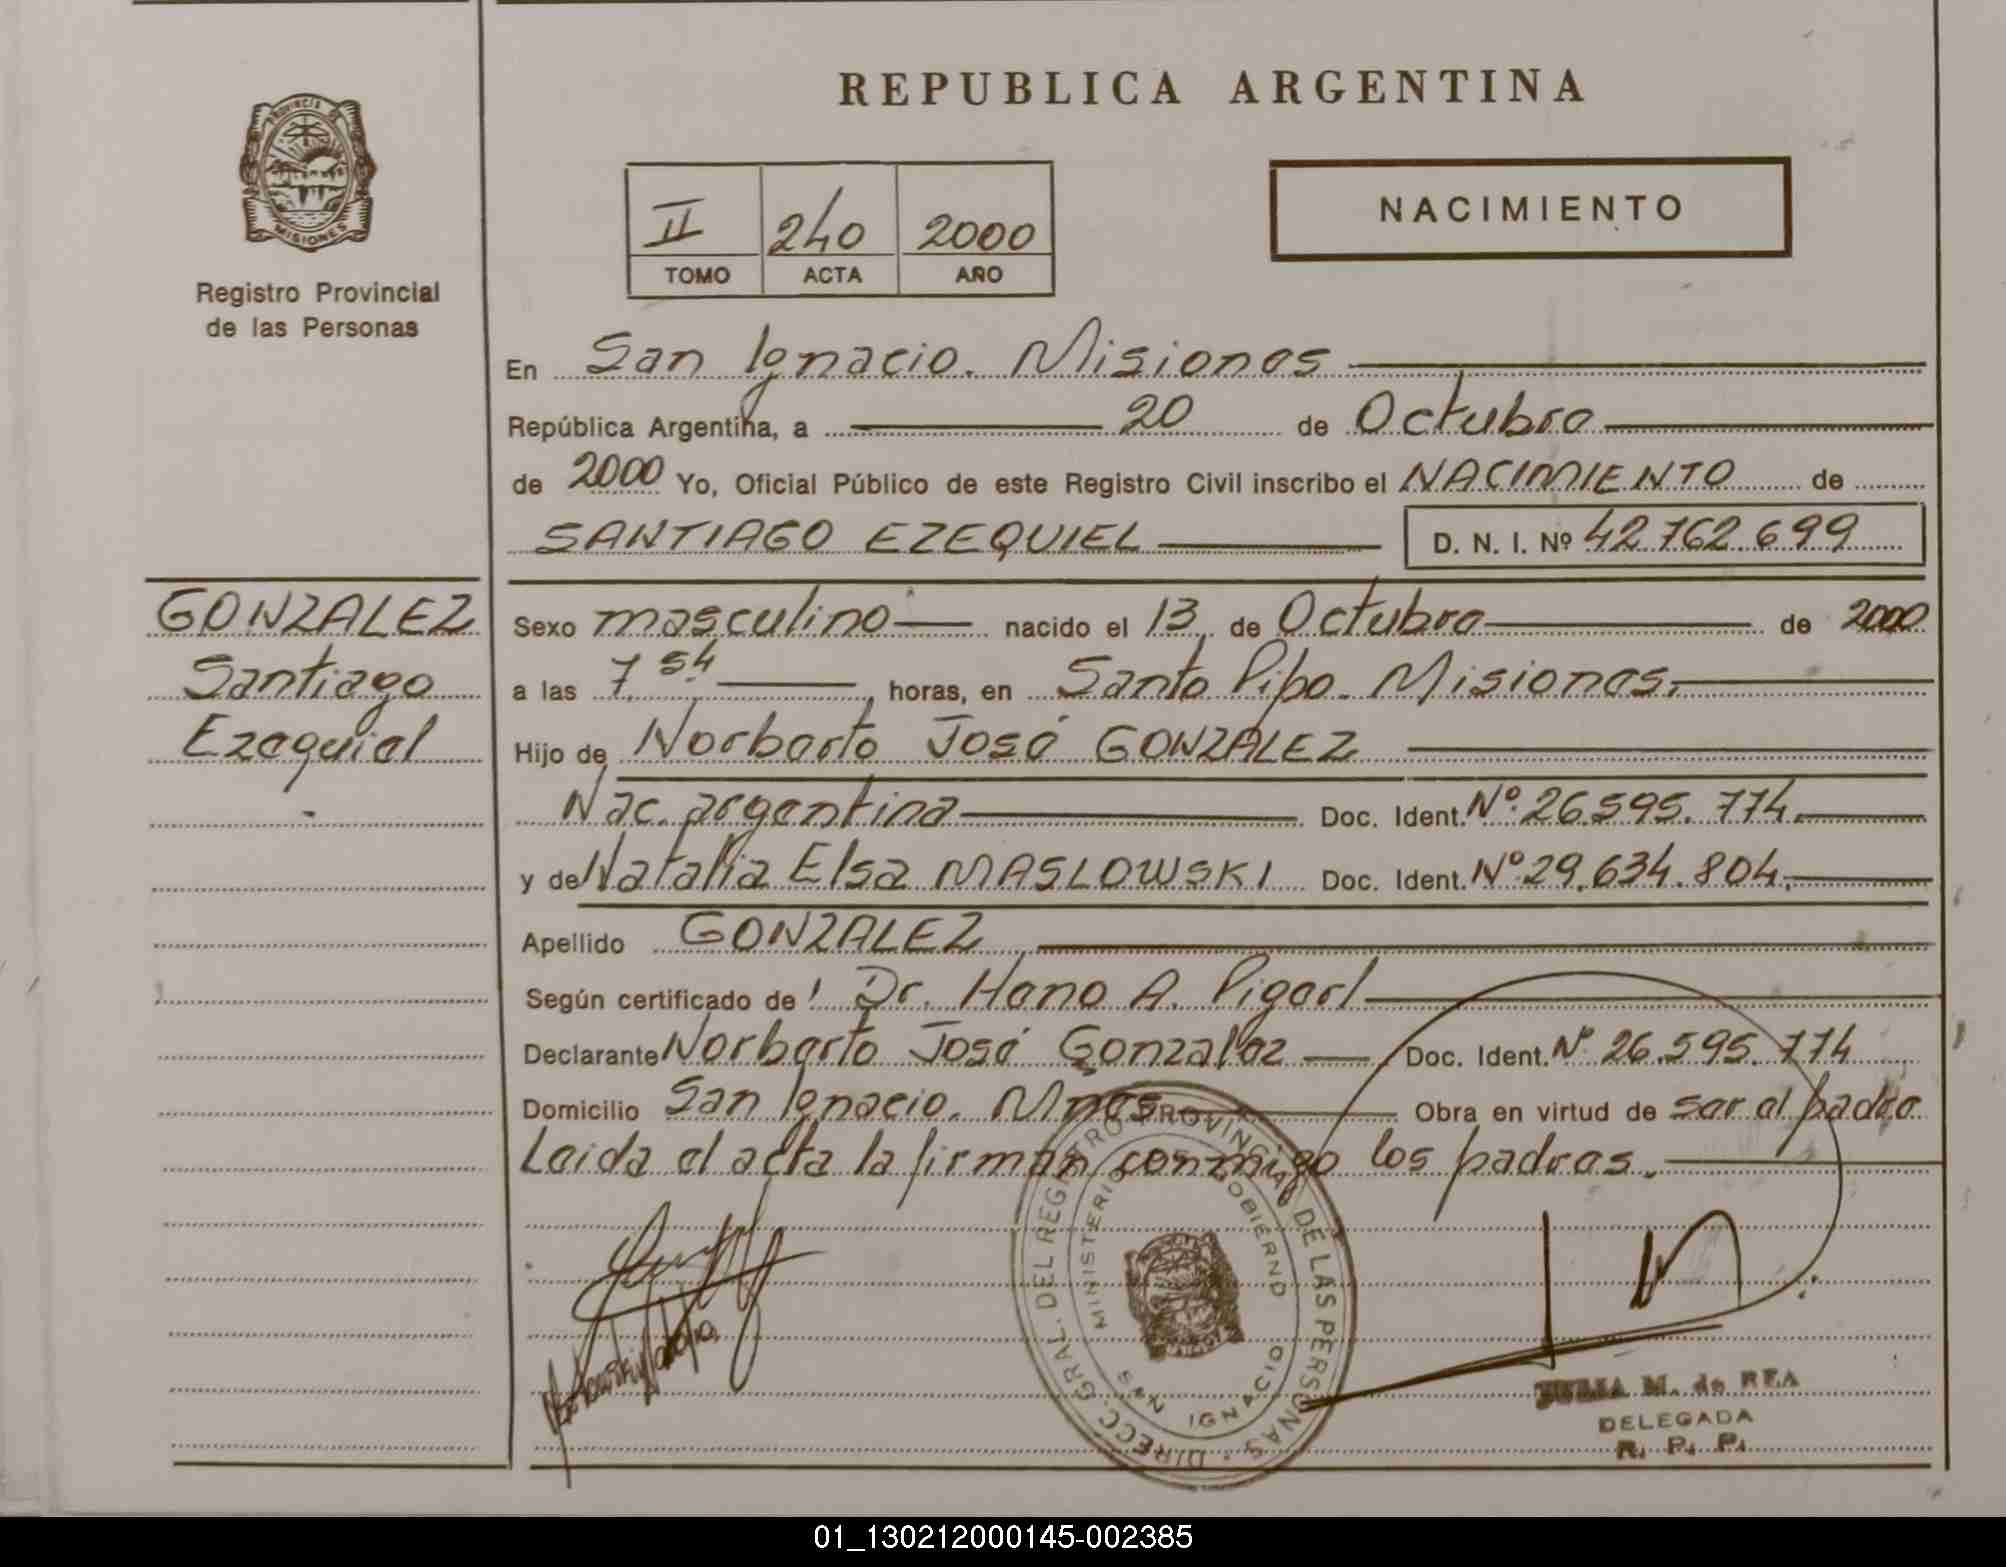 REPUBLICA ARGENTINA
PROVINCIA DE
MISIONES
Registro Provincial
de las Personas
II 240 2000
TOMO ACTA AÑO
NACIMIENTO
En San Ignacio. Misiones
República Argentina, a 20 de Octubre
de 2000 Yo, Oficial Público de este Registro Civil inscribo el NACIMIENTO de
SANTIAGO EZEQUIEL D. N. I. Nº 42.762.699
GONZALEZ
Santiago
Ezequiel
Sexo masculino nacido el 13 de Octubre de 2000
a las 7 54 horas, en Santo Pipo. Misiones.
Hijo de Norberto José GONZALEZ
Nac. argentina Doc. Ident. Nº 26.595.774.
y de Natalia Elsa MASLOWSKI Doc. Ident. Nº 29.634.804.
Apellido GONZALEZ
Según certificado de Dr. Hano A.
Declarante Norberto José Gonzalez Doc. Ident. Nº 26.595.774
Domicilio San Ignacio. Mnes Obra en virtud de ser el padre
Leida el acta la firman conmigo los padres.
DIRECC. GRAL. DEL REGISTRO PROVINCIAL DE LAS PERSONAS
MINISTERIO DE GOBIERNO
SAN IGNACIO
M. de REA
DELEGADA
R. P. P.
01_130212000145-002385